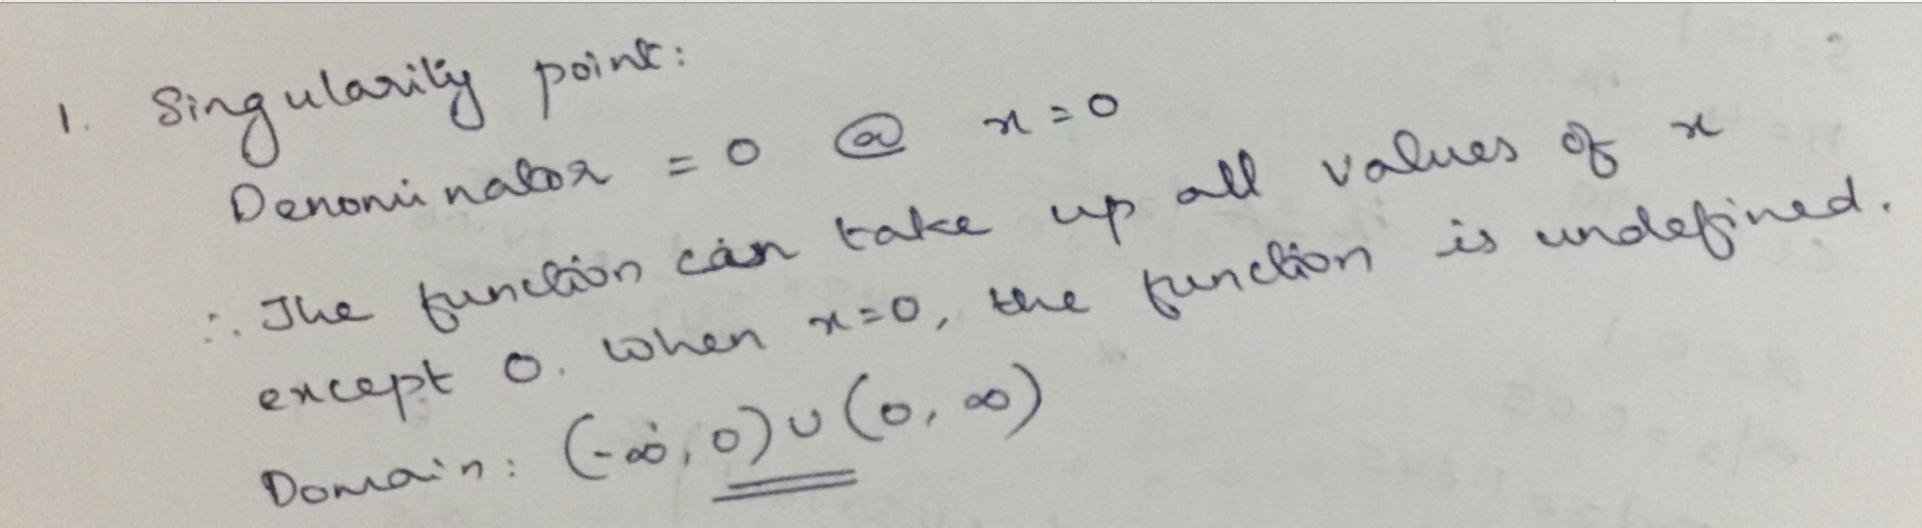 1. Singularity point:
Denominator = 0 @ x=0
∴ The function can take up all values of x
except 0. When x=0, the function is undefined.
Domain: (-∞, 0) ∪ (0, ∞)